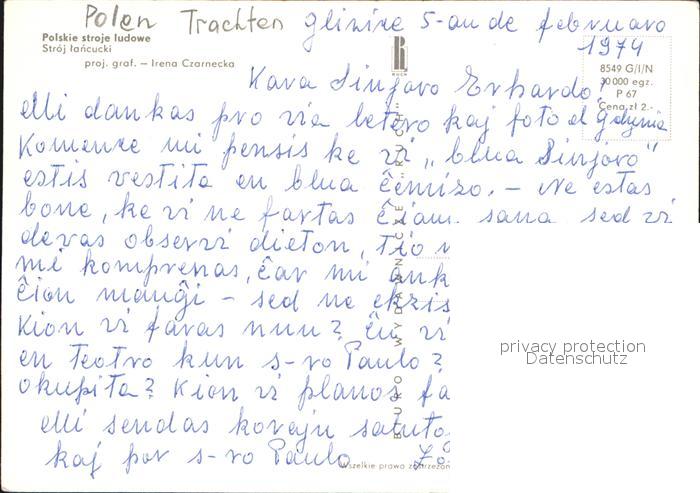 Polen Trachten Gliwice 5-an de februaro
Polskie stroje ludowe
1974
Strój łańcucki
proj. graf. — Irena Czarnecka
RUCH
8549 G/I/N
30 000 egz.
P 67
Cena zł 2.-
Kara Sinjoro Erhardo!
Mi dankas pro via letero kaj foto el Gdynia
Komence mi pensis ke vi „blua Sinjoro"
estis vestita en blua ĉemizo. – Ne estas
bone, ke vi ne fartas ĉiam sana sed vi
devas observi dieton, tio
mi komprenas, ĉar mi ank
ĉion manĝi – sed ne ekzis
Kion vi faras nun? Ĉu vi
en teatro kun s-ro Paulo?
okupita? Kion vi planos fa
Mi sendas korajn saluto
kaj por s-ro Paulo
BIURO WYDAWNICZE „RUCH"
Wszelkie prawa zastrzeżon
privacy protection
Datenschutz